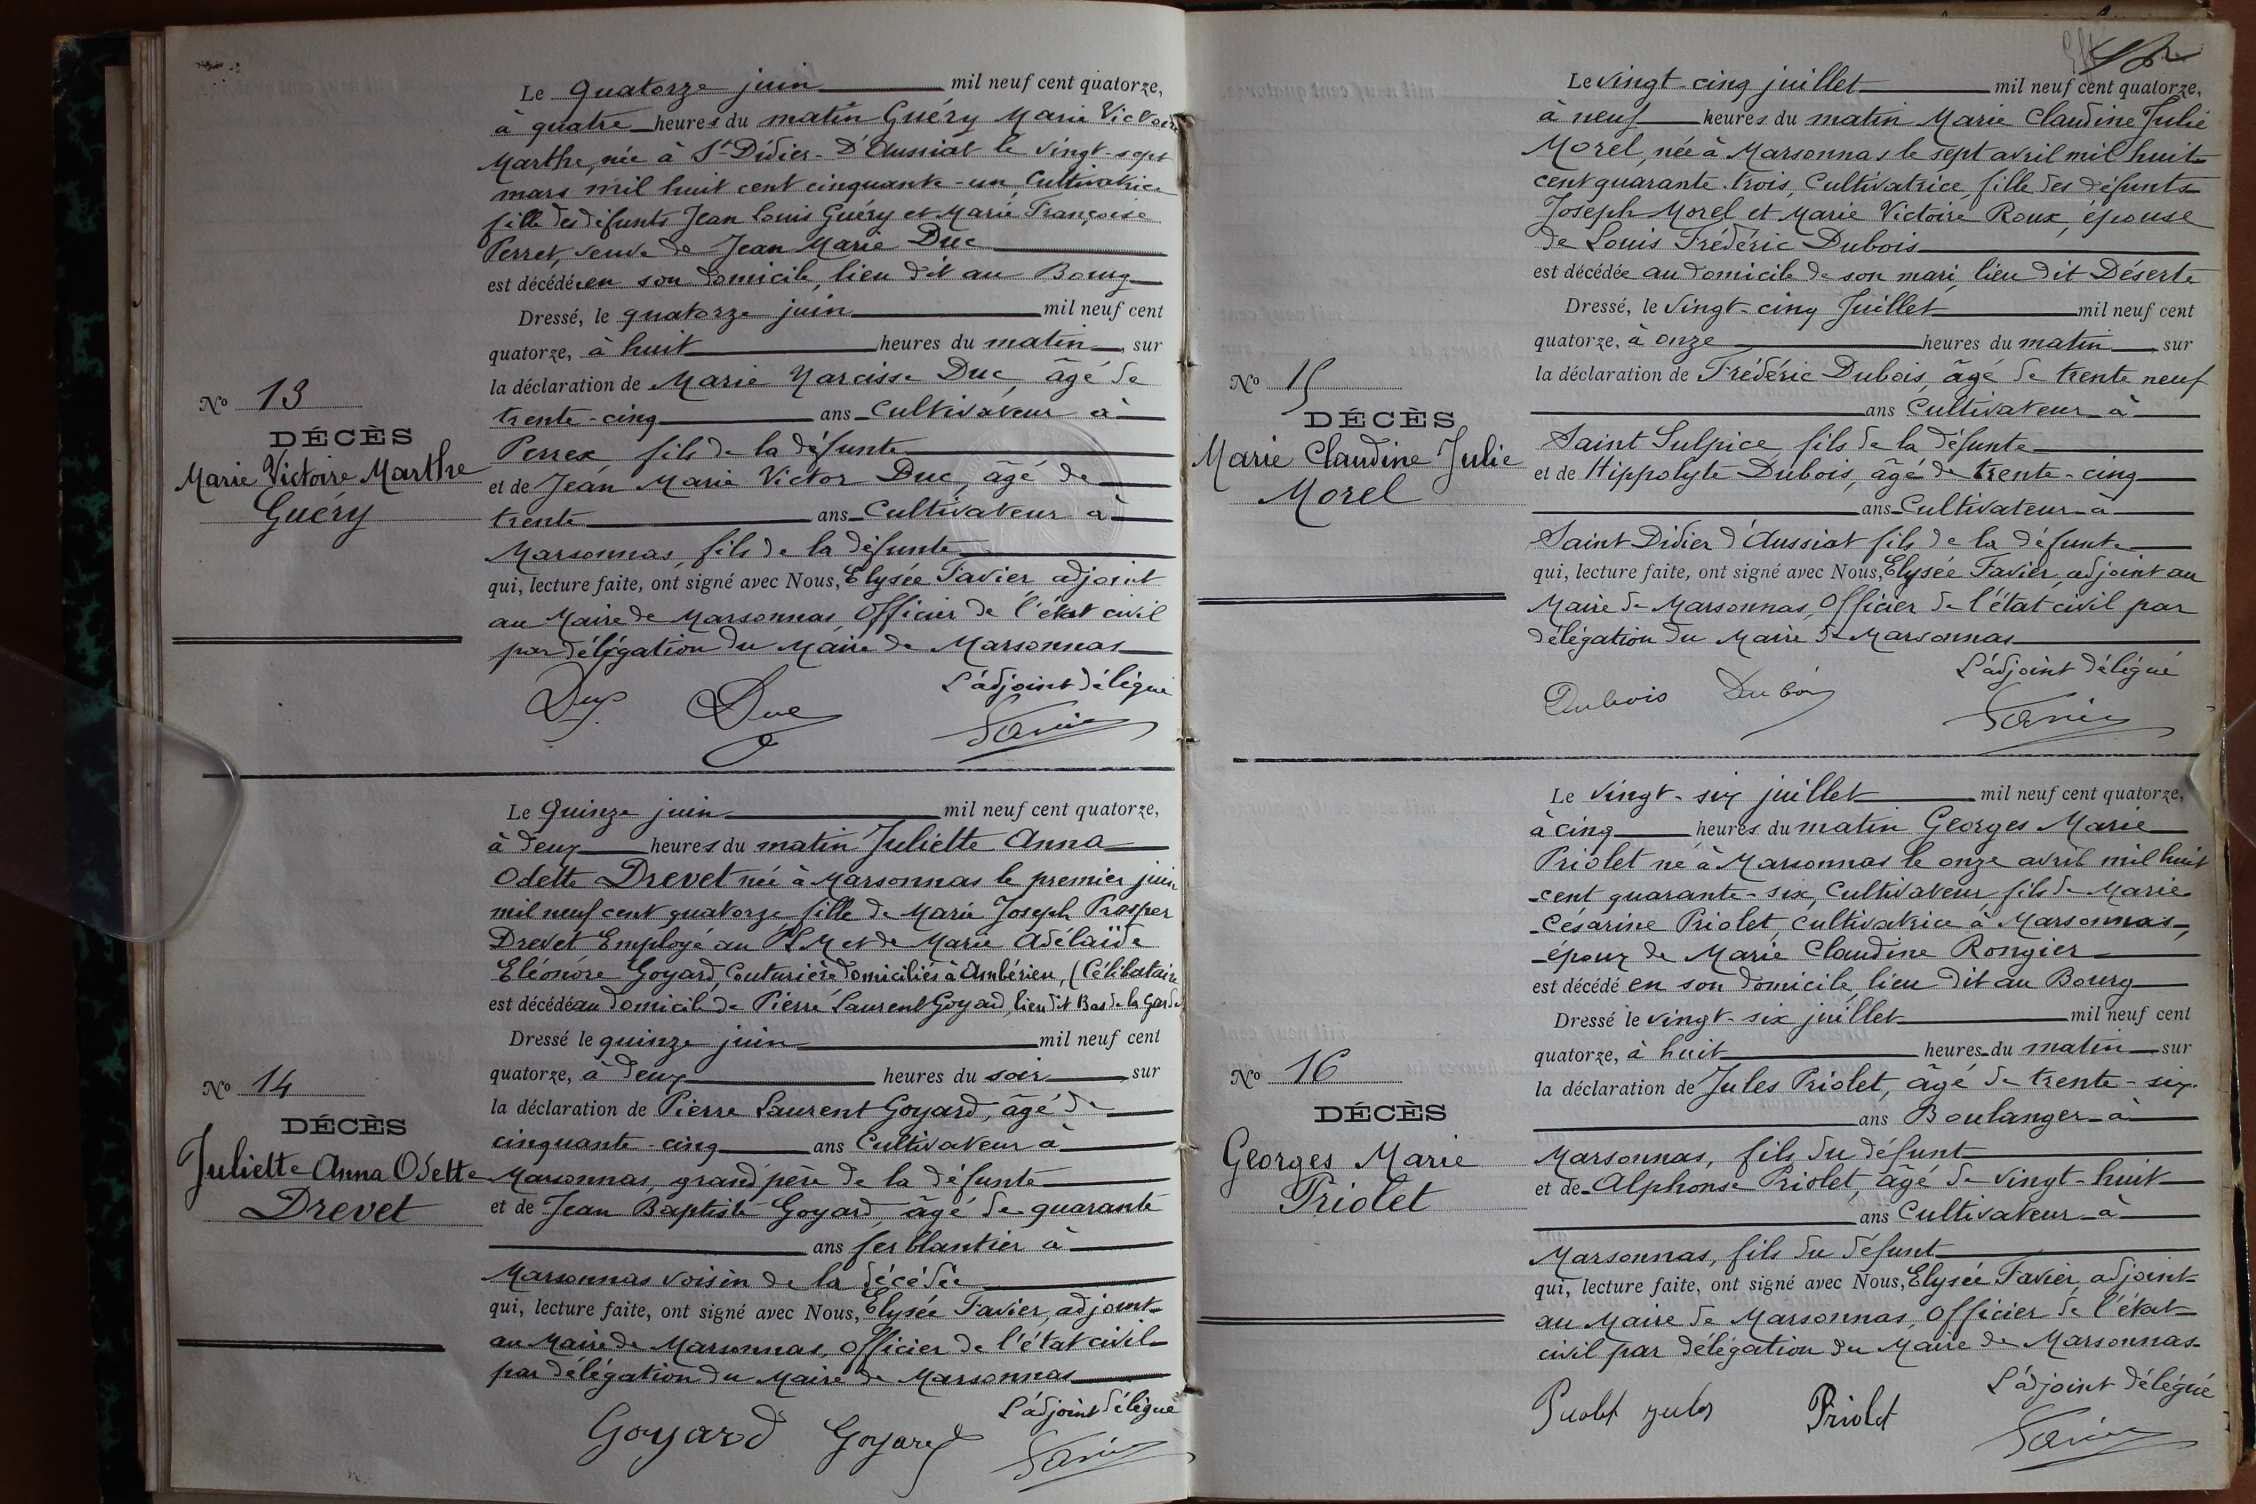 Le quatorze juin mil neuf cent quatorze,
à quatre heures du matin Guéry Marie Victoire
Marthe, née à St Didier-D'Aussiat le vingt-sept
mars mil huit cent cinquante-un, Cultivatrice
fille des défunts Jean Louis Guéry et Marie Françoise
Perret, veuve de Jean Marie Duc
est décédée en son domicile, lieu dit au Bourg
Dressé, le quatorze juin mil neuf cent
quatorze, à huit heures du matin, sur
la déclaration de Marie Narcisse Duc, âgé de
trente-cinq ans Cultivateur à
Perrex, fils de la défunte
et de Jean Marie Victor Duc, âgé de
trente ans Cultivateur à
Marsonnas, fils de la défunte
qui, lecture faite, ont signé avec Nous, Elysée Favier, adjoint
au Maire de Marsonnas, Officier de l'état civil
par délégation du Maire de Marsonnas
L'adjoint délégué
Duc Duc Favier
No 13
DÉCÈS
Marie Victoire Marthe
Guéry
Le Quinze juin mil neuf cent quatorze,
à deux heures du matin Juliette Anna
Odette Drevet née à Marsonnas le premier juin
mil neuf cent quatorze fille de Marie Joseph Prosper
Drevet Employé au PLM et de Marie Adélaïde
Eléonore Goyard, Couturière domiciliés à Ambérieu, (Célibataire
est décédée au domicile de Pierre Laurent Goyard, lieu dit Bas de la Garde
Dressé le quinze juin mil neuf cent
quatorze, à deux heures du soir sur
la déclaration de Pierre Laurent Goyard, âgé de
cinquante-cinq ans Cultivateur à
Marsonnas, grand père de la défunte
et de Jean Baptiste Goyard, âgé de quarante
ans ferblantier à
Marsonnas voisin de la décédée
qui, lecture faite, ont signé avec Nous, Elysée Favier, adjoint
au Maire de Marsonnas, Officier de l'état civil
par délégation du Maire de Marsonnas
L'adjoint délégué
Goyard Goyard Favier
No 14
DÉCÈS
Juliette Anna Odette
Drevet
Le vingt-cinq juillet mil neuf cent quatorze,
à neuf heures du matin Marie Claudine Julie
Morel, née à Marsonnas le sept avril mil huit
cent quarante-trois, Cultivatrice, fille des défunts
Joseph Morel et Marie Victoire Roux, épouse
de Louis Frédéric Dubois
est décédée au domicile de son mari, lieu dit Déserte
Dressé, le vingt-cinq Juillet mil neuf cent
quatorze, à onze heures du matin sur
la déclaration de Frédéric Dubois, âge de trente neuf
ans Cultivateur à
Saint Sulpice, fils de la défunte
et de Hippolyte Dubois, âgé de trente-cinq
ans Cultivateur à
Saint Didier d'Aussiat fils de la défunte
qui, lecture faite, ont signé avec Nous, Elysée Favier, adjoint au
Maire de Marsonnas, Officier de l'état civil par
délégation du Maire de Marsonnas
L'adjoint délégué
Dubois Dubois Favier
No 15
DÉCÈS
Marie Claudine Julie
Morel
Le vingt-six juillet mil neuf cent quatorze,
à cinq heures du matin Georges Marie
Priolet né à Marsonnas le onze avril mil huit
cent quarante-six, Cultivateur fils de Marie
Césarine Priolet, cultivatrice à Marsonnas,
époux de Marie Claudine Rongier
est décédé en son domicile, lieu dit au Bourg
Dressé le vingt-six juillet mil neuf cent
quatorze, à huit heures du matin sur
la déclaration de Jules Priolet, âgé de trente-six
ans Boulanger à
Marsonnas, fils du défunt
et de Alphonse Priolet, âgé de vingt-huit
ans Cultivateur à
Marsonnas, fils du défunt
qui, lecture faite, ont signé avec Nous, Elysée Favier, adjoint
au Maire de Marsonnas, Officier de l'état
civil par délégation du Maire de Marsonnas
L'adjoint délégué
Priolet jules Priolet Favier
No 16
DÉCÈS
Georges Marie
Priolet